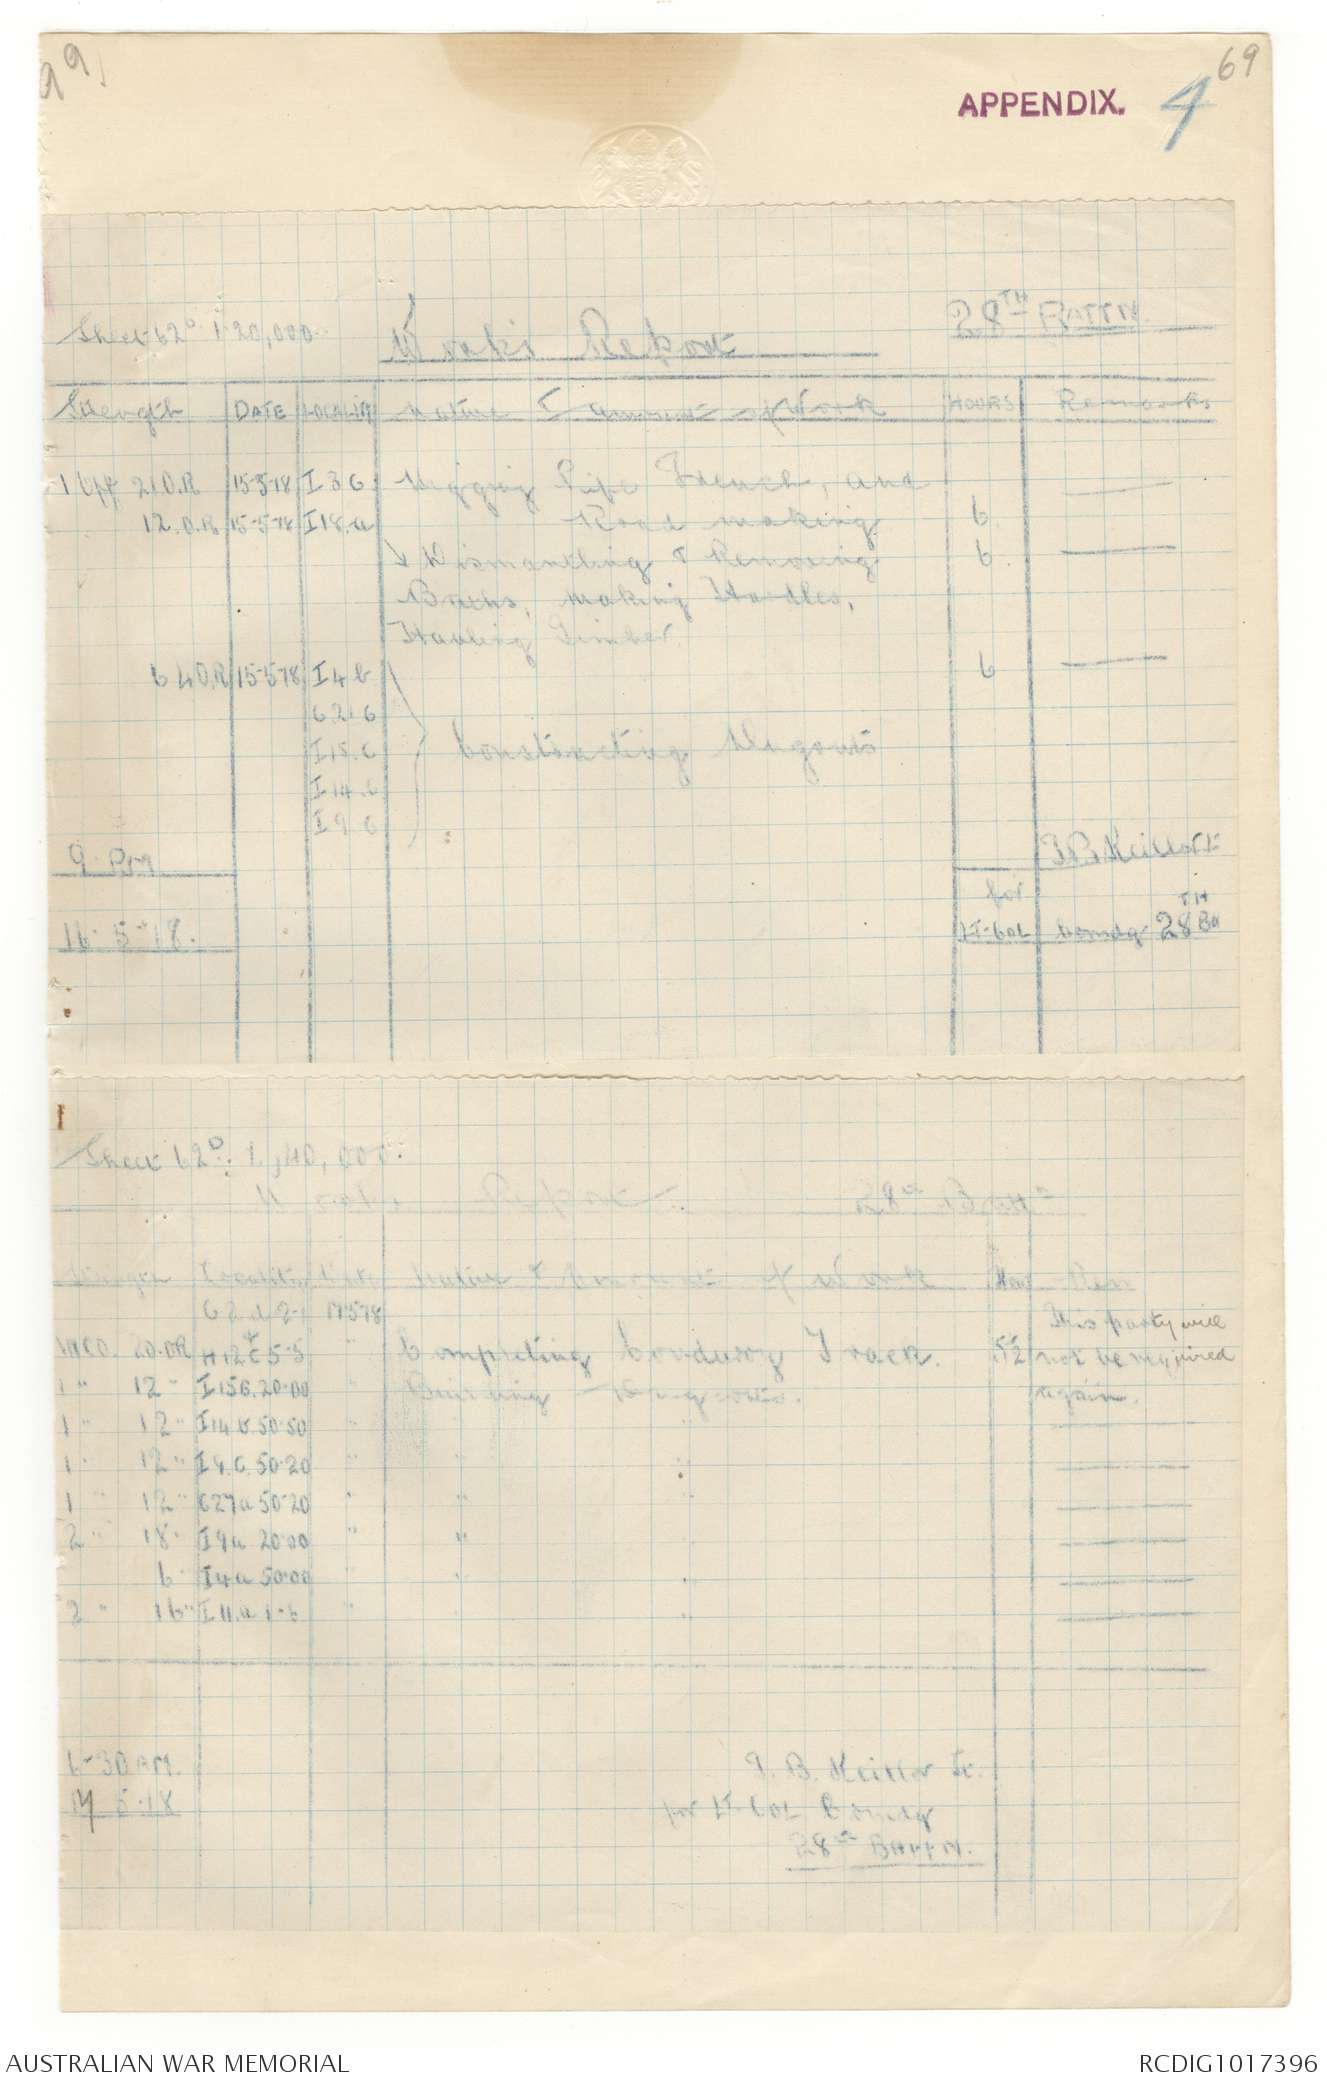 99
69
APPENDIX. 4
Sheet 62D 1.20,000
Works Report
28TH BATTN.
Strength DATE LOCALITY Nature & amount of Work HOURS Remarks
1 Off 21 O.R 15-5-18 I 3 C Digging Pipe Trench, and
12.O.R 15-5-18 I 18.a Road making 6
Dismantling & Removing 6
making Hurdles,
Hauling Timber.
64 O.R 15-5-18 I 4 b 6
I 15.C Constructing Dugouts
I 14.b
I 9 C
9 PM
for
16-5-18. LT-COL Comdg 28TH Bn
Sheet 62D: 1,40,000.
Works Report 28th Battn
Locality Date Nature & amount of work
17-5-18
This party will
20.OR H12c 5-5 " Completing Corduroy Track. 5½ not be required
1 " 12 " I15C.20-00 " Building Dugouts. again.
1 " 12 " I14 b.50-50
1 " 12 " I9.C.50-20 " "
1 " 12 " C27a 50-20 " "
2 " 18 " I9a 20-00 " "
6 I4a 50-00 " "
2 " 16 " I11.a 1-6 "
6-30 AM.
17 5-18
for LT-COL Comdg
28th BATTN.
AUSTRALIAN WAR MEMORIAL
RCDIG1017396